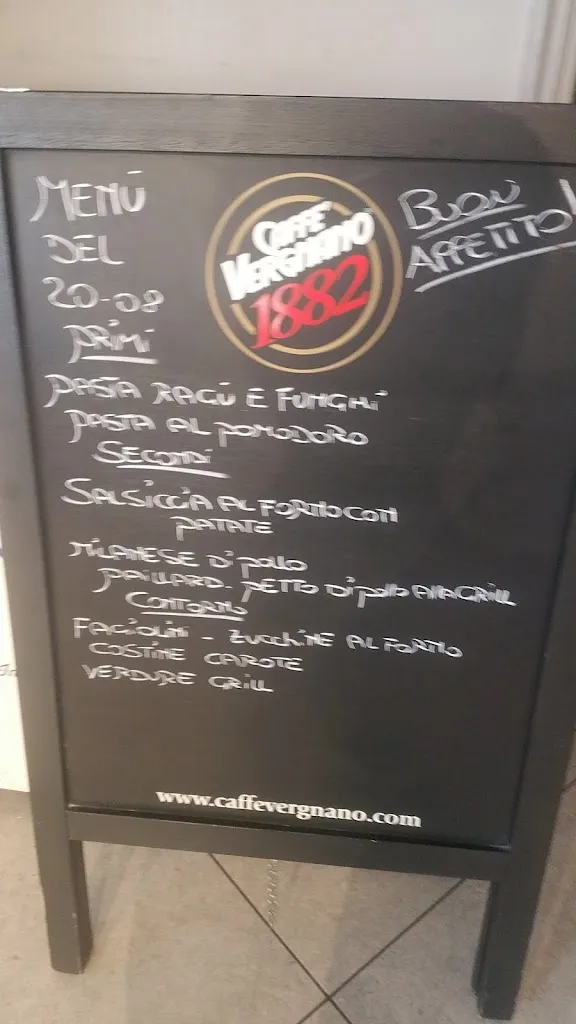 MENÙ
DEL
20-08
PRIMI
CAFFÈ
VERGNANO
1882
BUON
APPETITO!
PASTA RAGÙ E FUNGHI
PASTA AL POMODORO
SECONDI
SALSICCIA AL FORNO CON
PATATE
MILANESE DI POLLO
PAILLARD. PETTO DI POLLO ALLA GRILL
CONTORNO
FAGIOLINI - ZUCCHINE AL FORNO
COSTINE CAROTE
VERDURE GRILL
www.caffevergnano.com